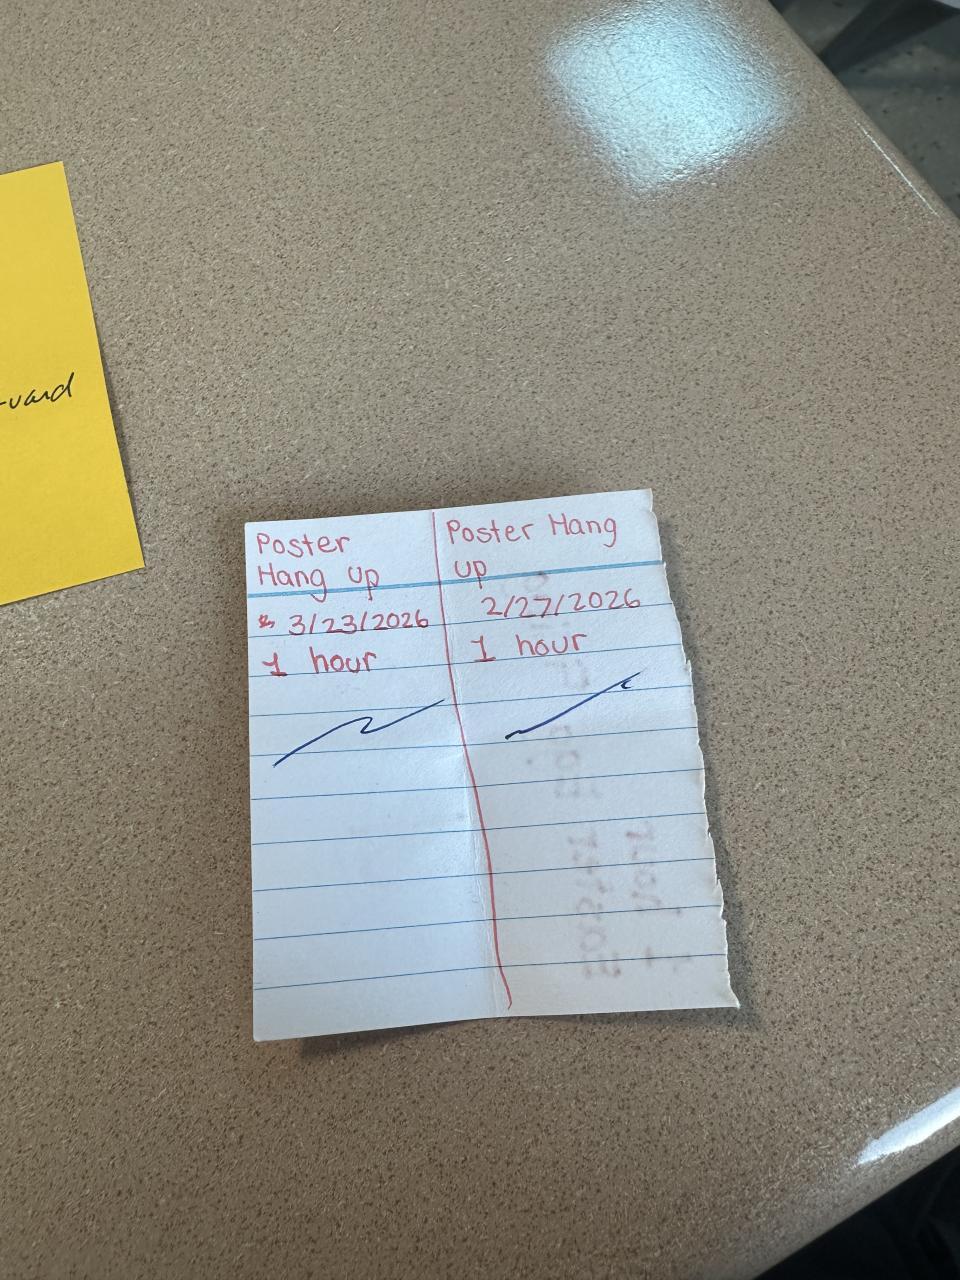 Poster
Hang up
3/23/2026
1 hour
Poster Hang
up
2/27/2026
1 hour